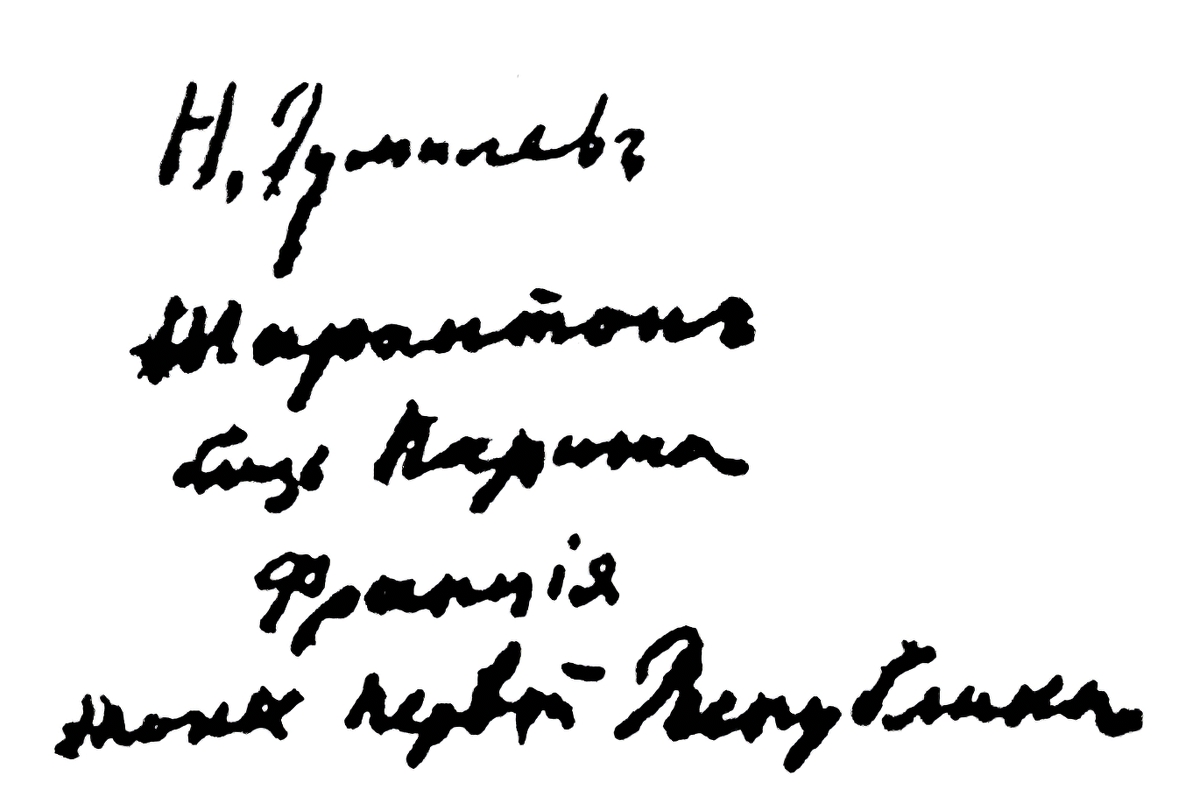 Н. Гумилевъ
Шарантонъ
близь Парижа
Франція
первой Републики